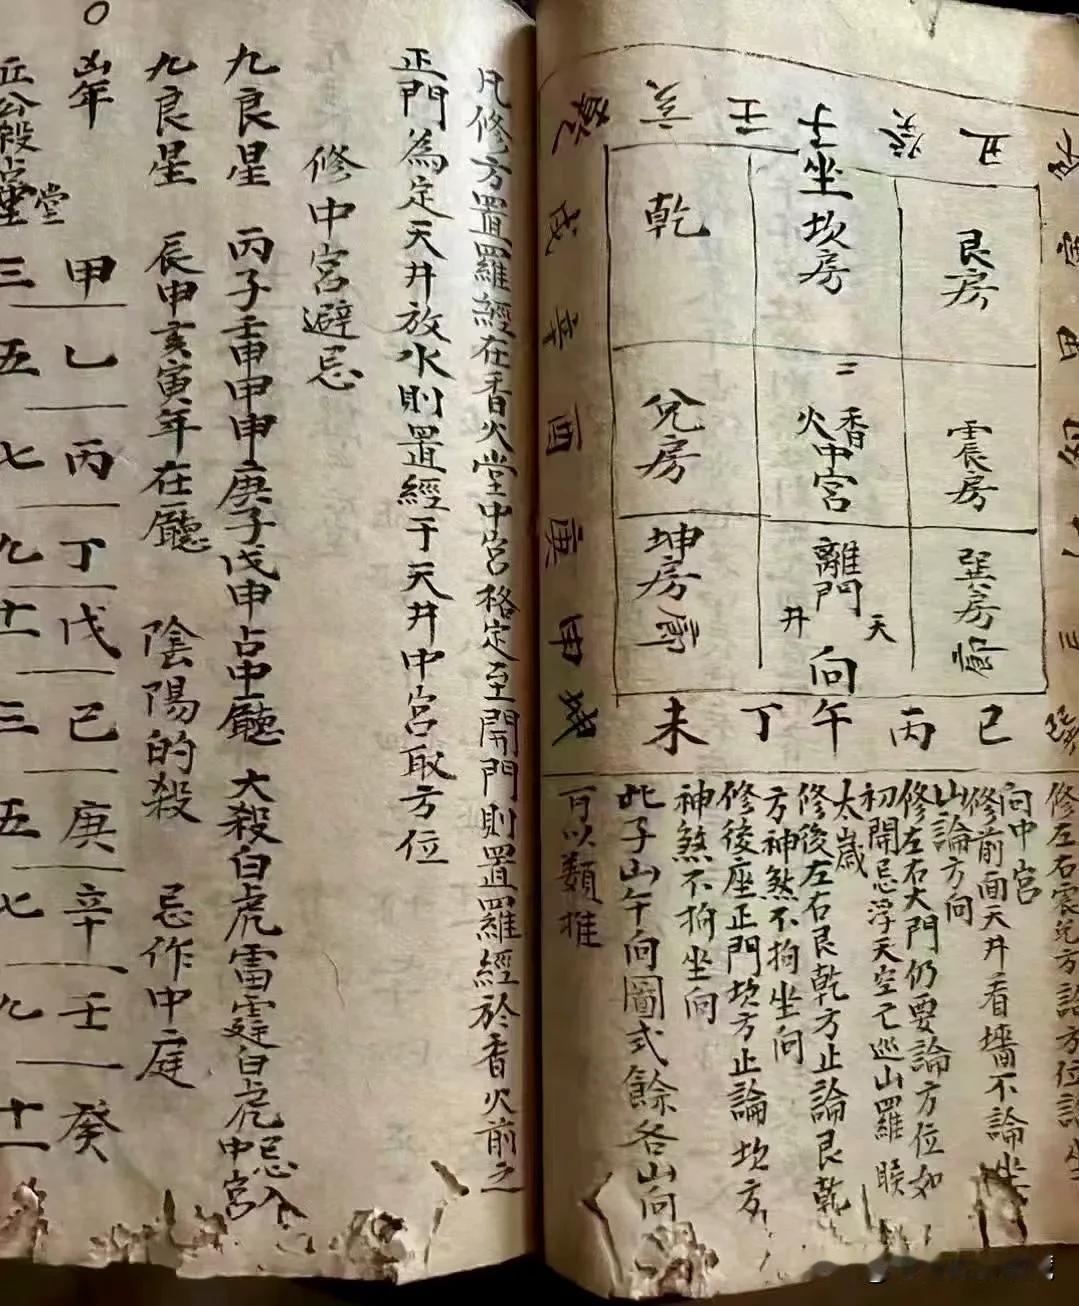 丑
癸
子
壬
亥
乾
戌
辛
酉
庚
申
未
丁
午
丙
巳
艮房
坐坎房
乾
震房
香火中宮
兌房
巽房
離門
天井
向
坤房
修左右震兌方論方位論坐
向中宮
修前面天井看墻不論坐
山論方向
修左右大門仍要論方位如
初開忌浮天空亡巡山羅睺
太歲
修後左右艮乾方止論艮乾
方神煞不拘坐向
修後座正門坎方止論坎方
神煞不拘坐向
此子山午向圖式餘各山向
可以類推
凡修方置羅經在香火堂中宮格定至開門則置羅經於香火前之
正門為定天井放水則置經于天井中宮取方位
修中宮避忌
九良星 丙子壬申甲申庚子戊申占中廳 大殺白虎雷霆白虎忌入中宮
九良星 辰申亥寅年在廳 陰陽的殺 忌作中庭
凶年 甲 乙 丙 丁 戊 己 庚 辛 壬 癸
丘公殺占堂 三 五 七 九 十一 三 五 七 九 十一